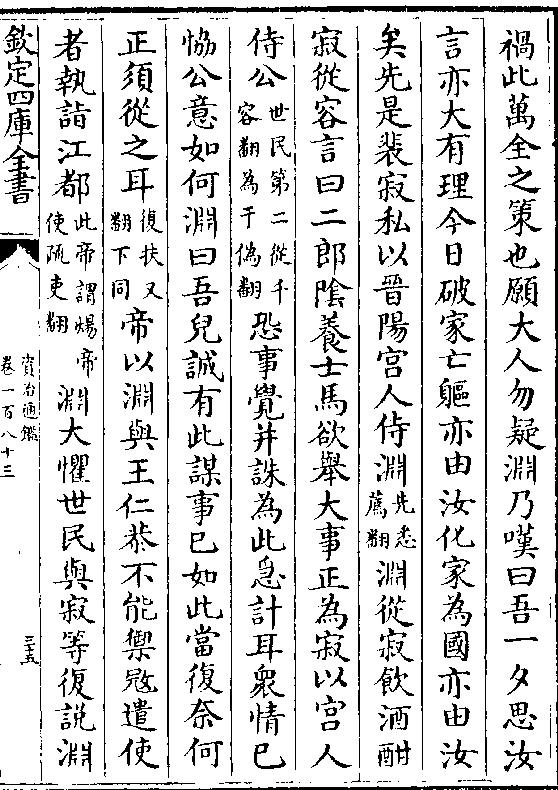 禍此萬全之策也願大人勿疑淵乃嘆曰吾一夕思汝
言亦大有理今日破家亡軀亦由汝化家為國亦由汝
矣先是裴寂私以晉陽宫人侍淵先悉薦翻淵從寂飲酒酣
寂從容言曰二郎隂養士馬欲舉大事正為寂以宫人
侍公世民第二從千容翻為于偽翻恐事覺并誅為此急計耳衆情已
恊公意如何淵曰吾兒誠有此謀事已如此當復奈何
正須從之耳復扶又翻下同帝以淵與王仁恭不能禦㓂遣使
者執詣江都此帝謂煬帝使疏吏翻淵大懼世民與寂等復説淵
欽定四庫全書
資治通鑑
卷一百八十三
三五